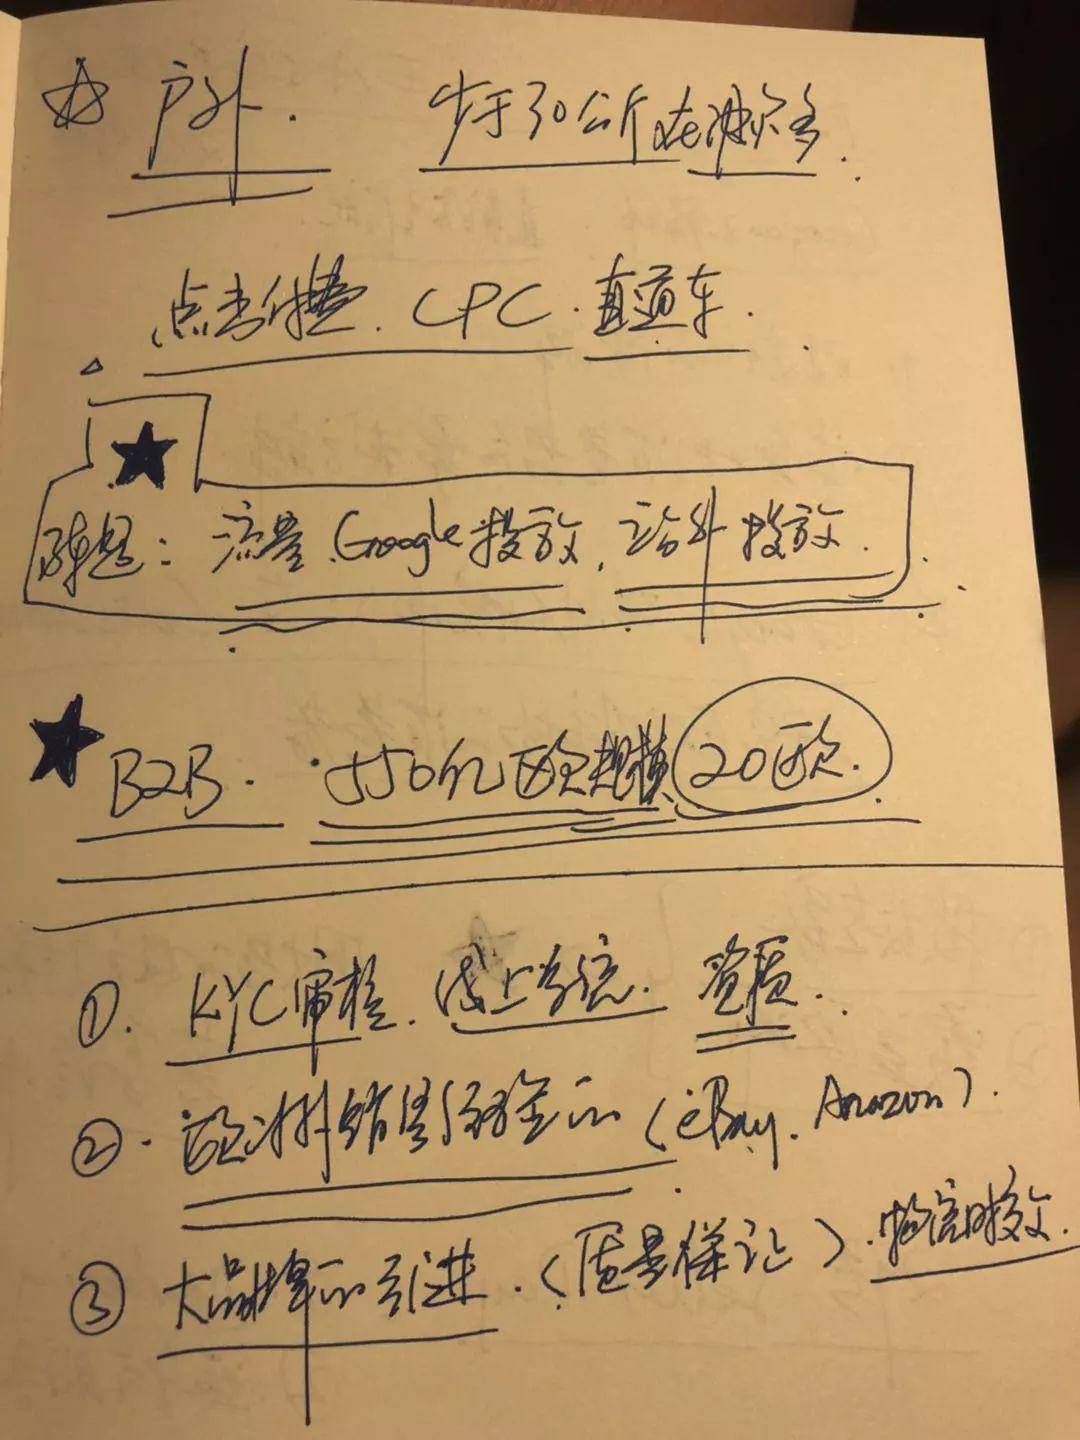 户外. 少于30公斤
点击付费. CPC. 直通车.
难题：流量. Google投放，站外投放.
B2B. 550亿欧规模 20欧.
①. KYC审核. 线上系统. 资质.
②. 欧洲销售经验 (eBay. Amazon).
③ 大品牌的引进. (质量保证).